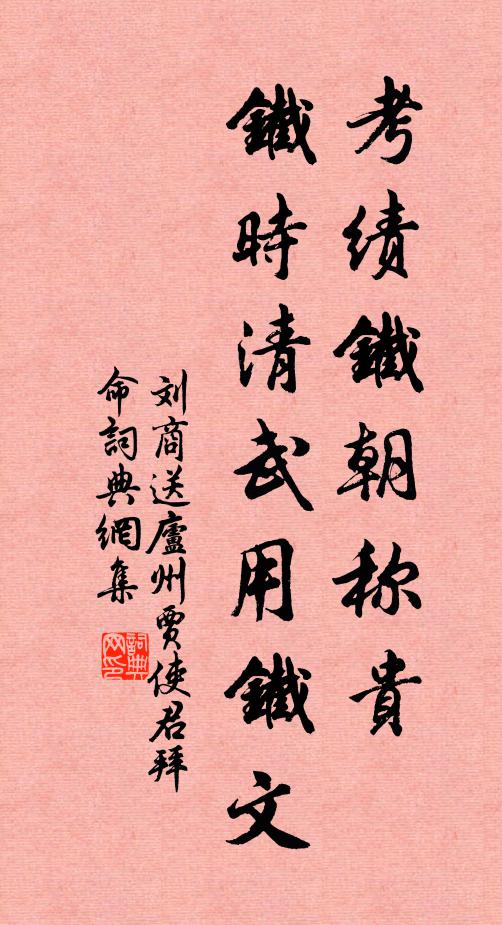 考绩鐵朝称貴
鐵時清武用鐵文
刘商送廬州賈使君拜
命詞典網集
詞典网印